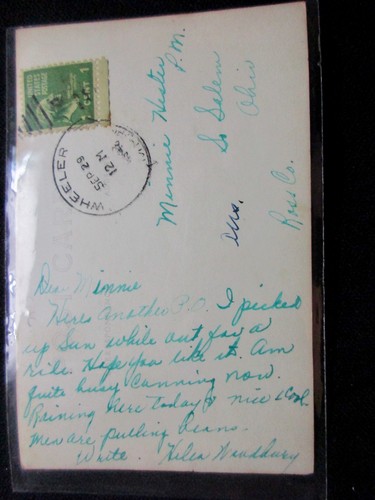 UNITED
STATES POSTAGE
1 CENT
WHEELER
SEP 29
12 M
Minnie Hester P.M.
So Salem
Ohio
Ross Co.
Dear Minnie
Heres Another P.O. I picked
up Sun while out for a
ride. Hope you like it. Am
quite busy Canning now.
Raining here today & nice & Cool.
Men are pulling beans.
Write. Helen Woodbury